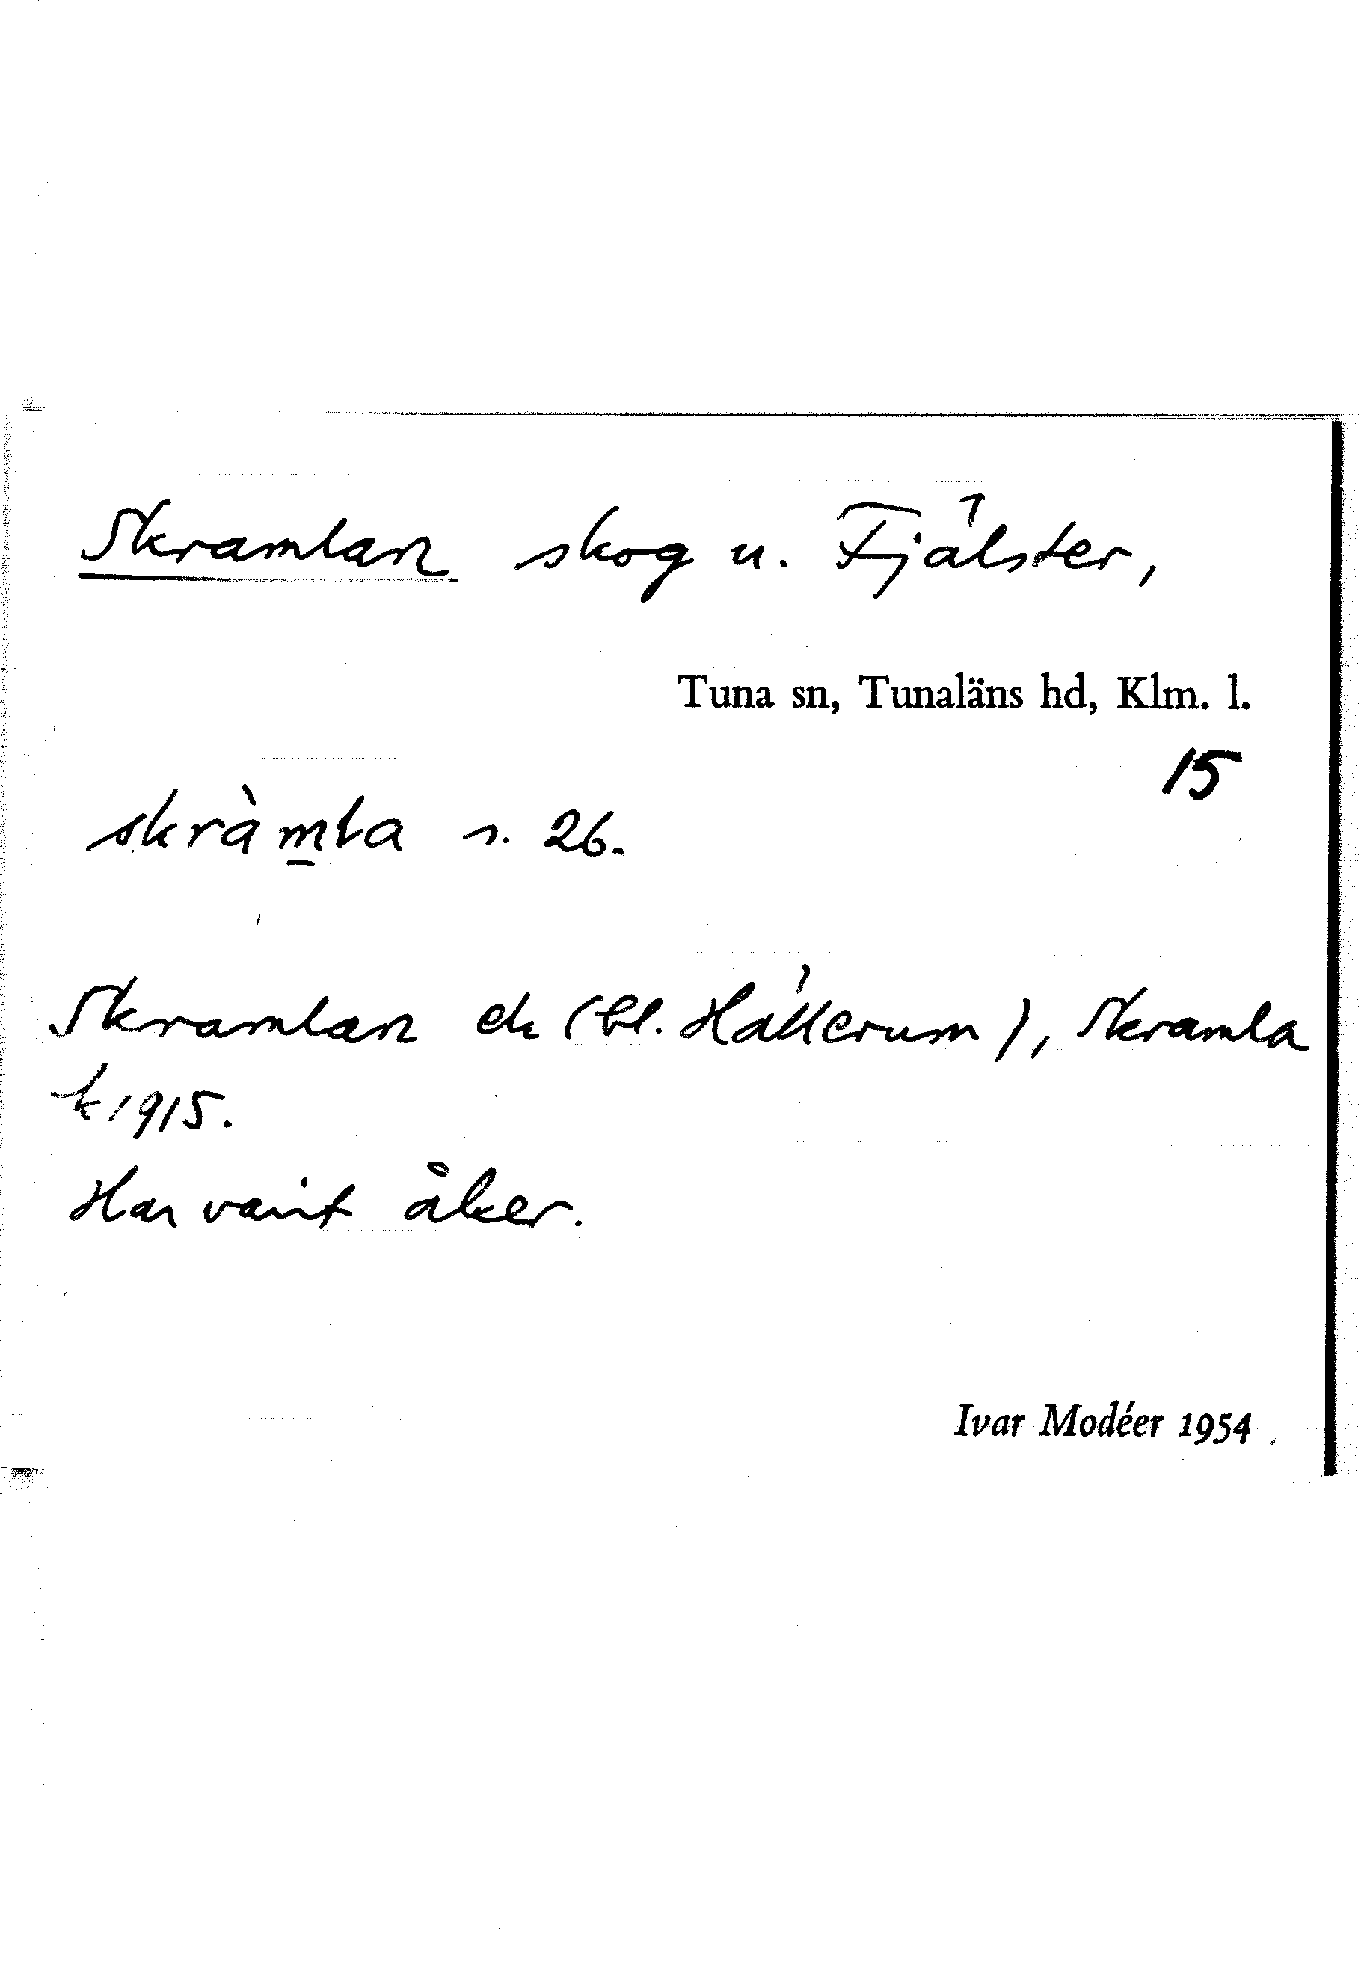 Skramlan skog u. Fjälster,
Tuna sn, Tunaläns hd, Klm. l.
15
skràm̲la s. 26.
Skramlan ek (bl. Hällerum), Skramla
k 1915.
Har varit åker.
Ivar Modéer 1954